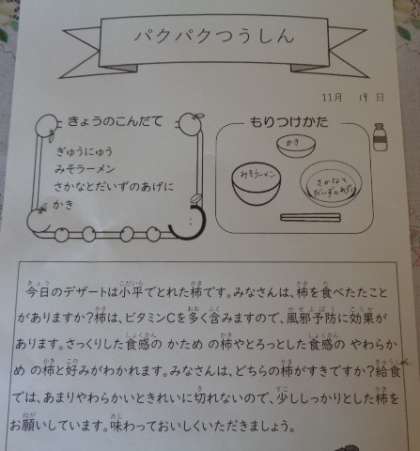 パクパクつうしん
11月 19日
きょうのこんだて
ぎゅうにゅう
みそラーメン
さかなとだいずのあげに
かき
もりつけかた
かき
みそラーメン
さかなと
だいずのあげに
今日のデザートは小平でとれた柿です。みなさんは、柿を食べたたこと
がありますか?柿は、ビタミンCを多く含みますので、風邪予防に効果が
あります。さっくりした食感の かため の柿やとろっとした食感の やわらか
め の柿と好みがわかれます。みなさんは、どちらの柿がすきですか?給食
では、あまりやわらかいときれいに切れないので、少ししっかりとした柿を
お願いしています。味わっておいしくいただきましょう。